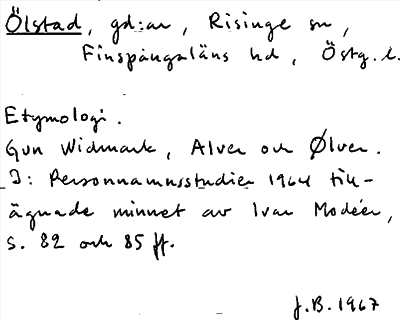 Ölstad, gd:ar, Risinge sn,
Finspångaläns hd, Östg.l.
Etymologi.
Gun Widmark, Alver och Ølver.
I: Personnamnsstudier 1964 till-
ägnade minnet av Ivar Modéer,
s. 82 och 85 ff.
J.B. 1967